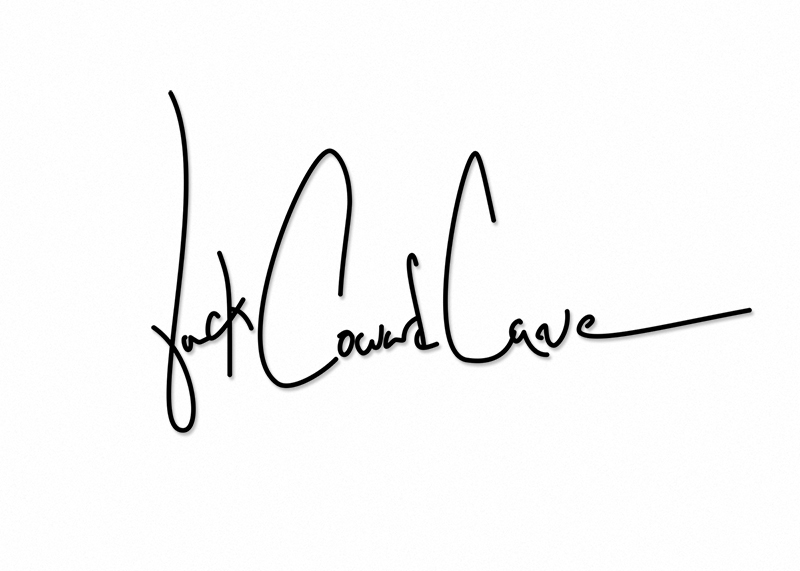 Jack Coward Cave